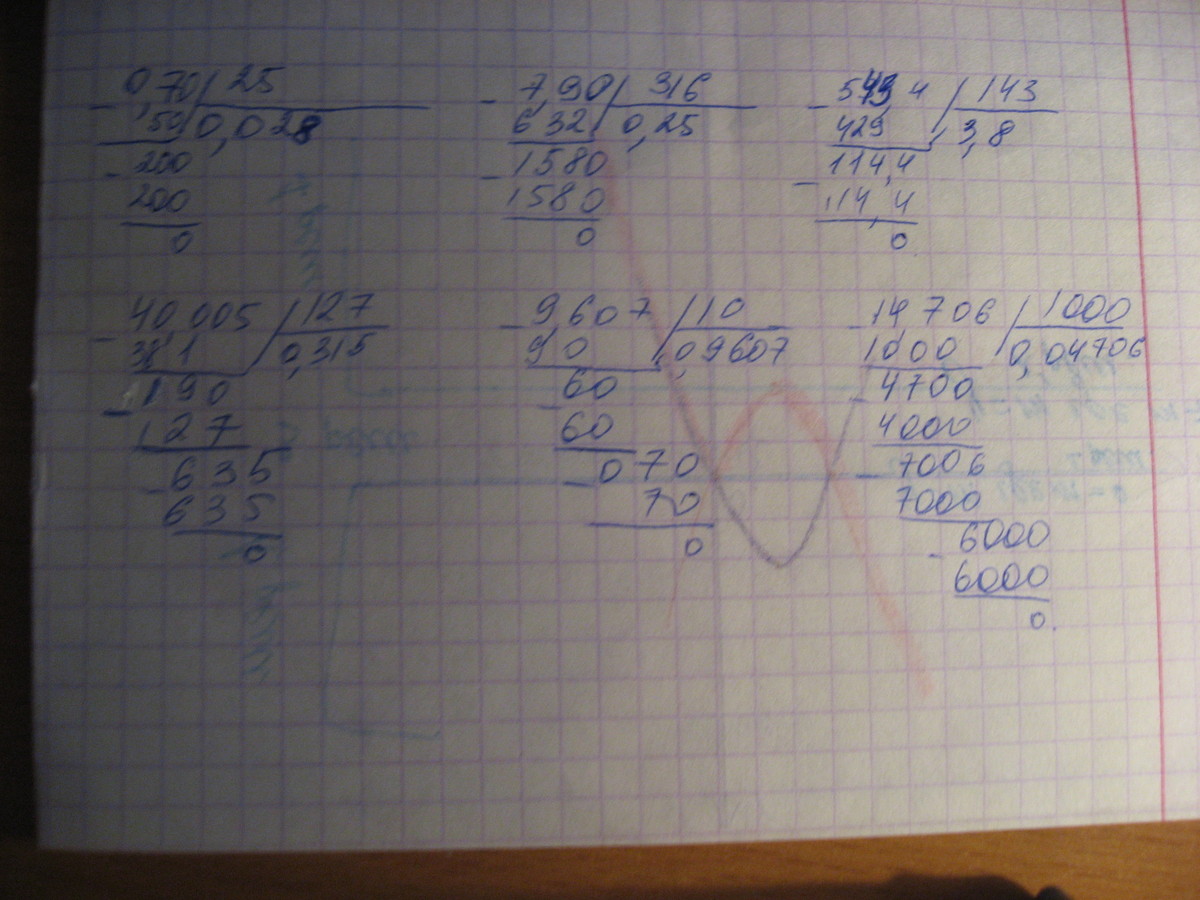 0,70 25
- 50 0,028
- 200
200
0
- 7,90 316
632 0,25
- 1580
1580
0
- 543,4 143
429 3,8
- 114,4
114,4
0
- 40,005 127
38 1 0,315
- 190
127
- 635
635
0
- 9,607 10
9 0 0,9607
- 60
60
- 070
70
0
- 14 706 1000
1000 0,04706
- 4700
4000
- 7006
7000
- 6000
6000
0